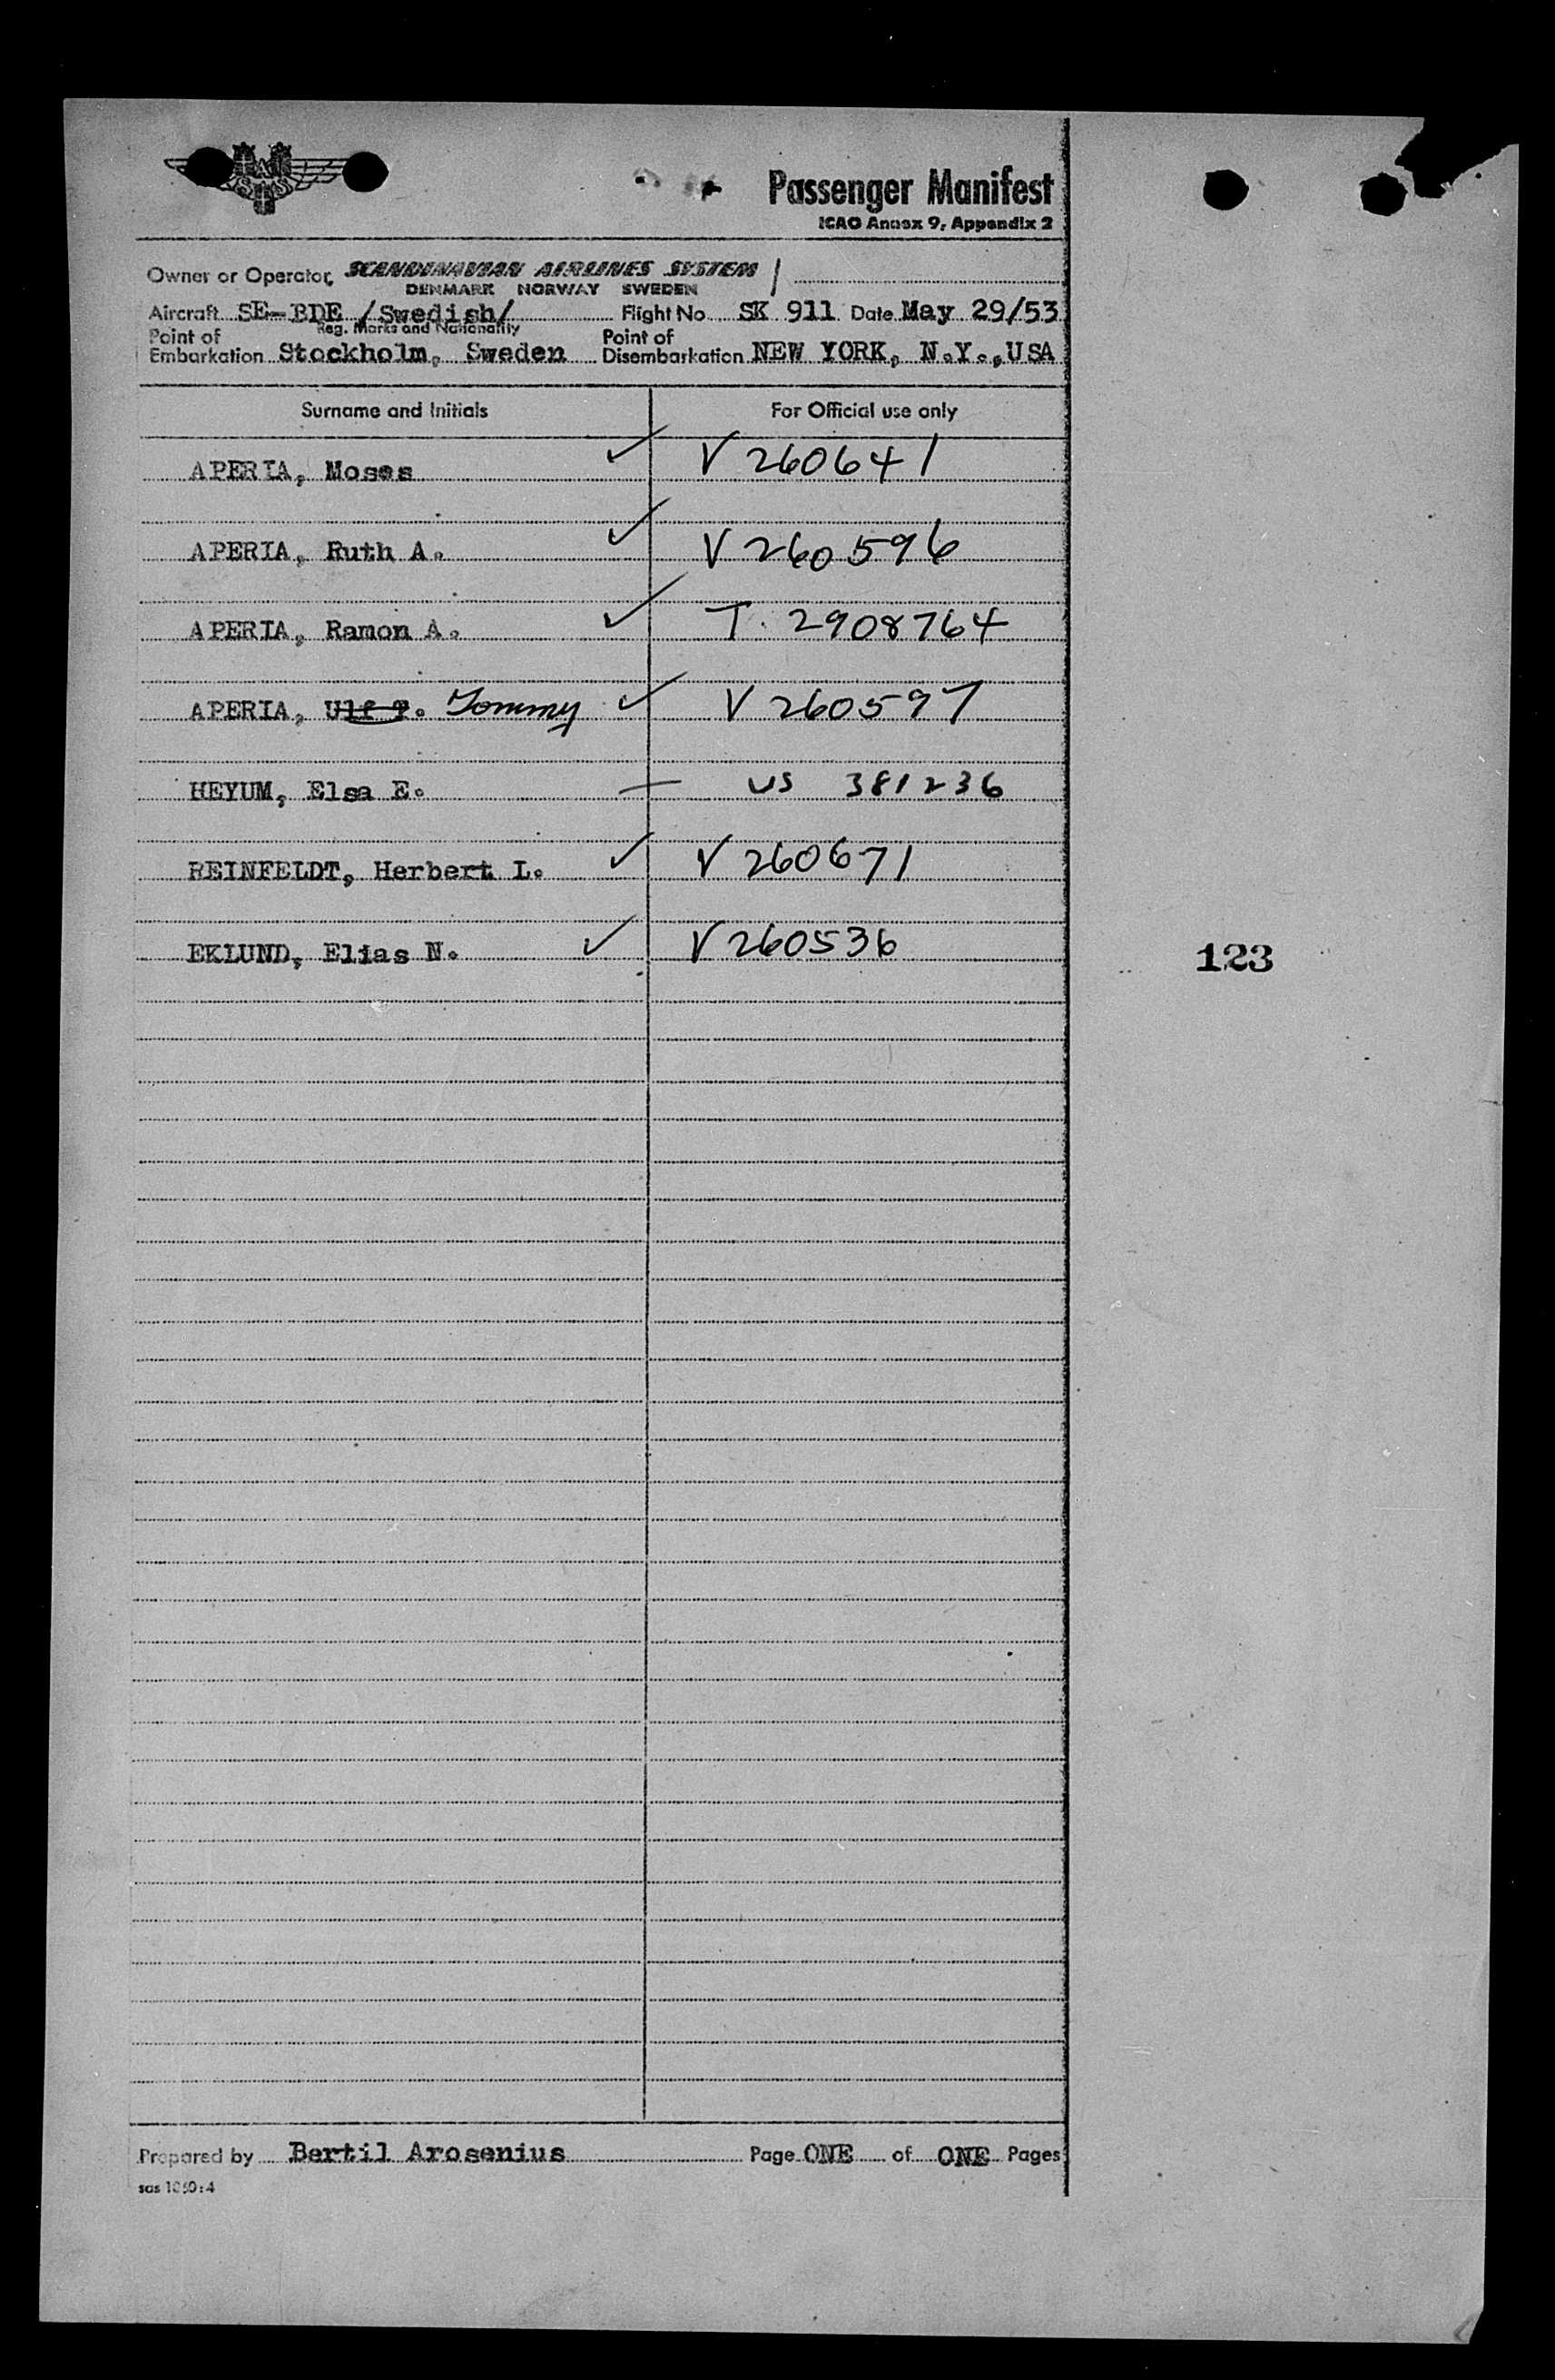 SAS
Passenger Manifest
ICAO Annex 9, Appendix 2
Owner or Operator, SCANDINAVIAN AIRLINES SYSTEM /
DENMARK NORWAY SWEDEN
Aircraft SE-BDE /Swedish/ Flight No SK 911 Date May 29/53
Reg. Marks and Nationality
Point of Embarkation Stockholm, Sweden Point of Disembarkation NEW YORK, N.Y., USA
Surname and Initials For Official use only
APERIA, Moses ✓ V 260641
APERIA, Ruth A. ✓ V 260596
APERIA, Ramon A. ✓ T. 2908764
APERIA, Ulf T. Tommy ✓ V 260597
HEYUM, Elsa E. — US 381236
REINFELDT, Herbert L. ✓ V 260671
EKLUND, Elias N. ✓ V 260536
123
Prepared by Bertil Arosenius Page ONE of ONE Pages
sas 1060:4